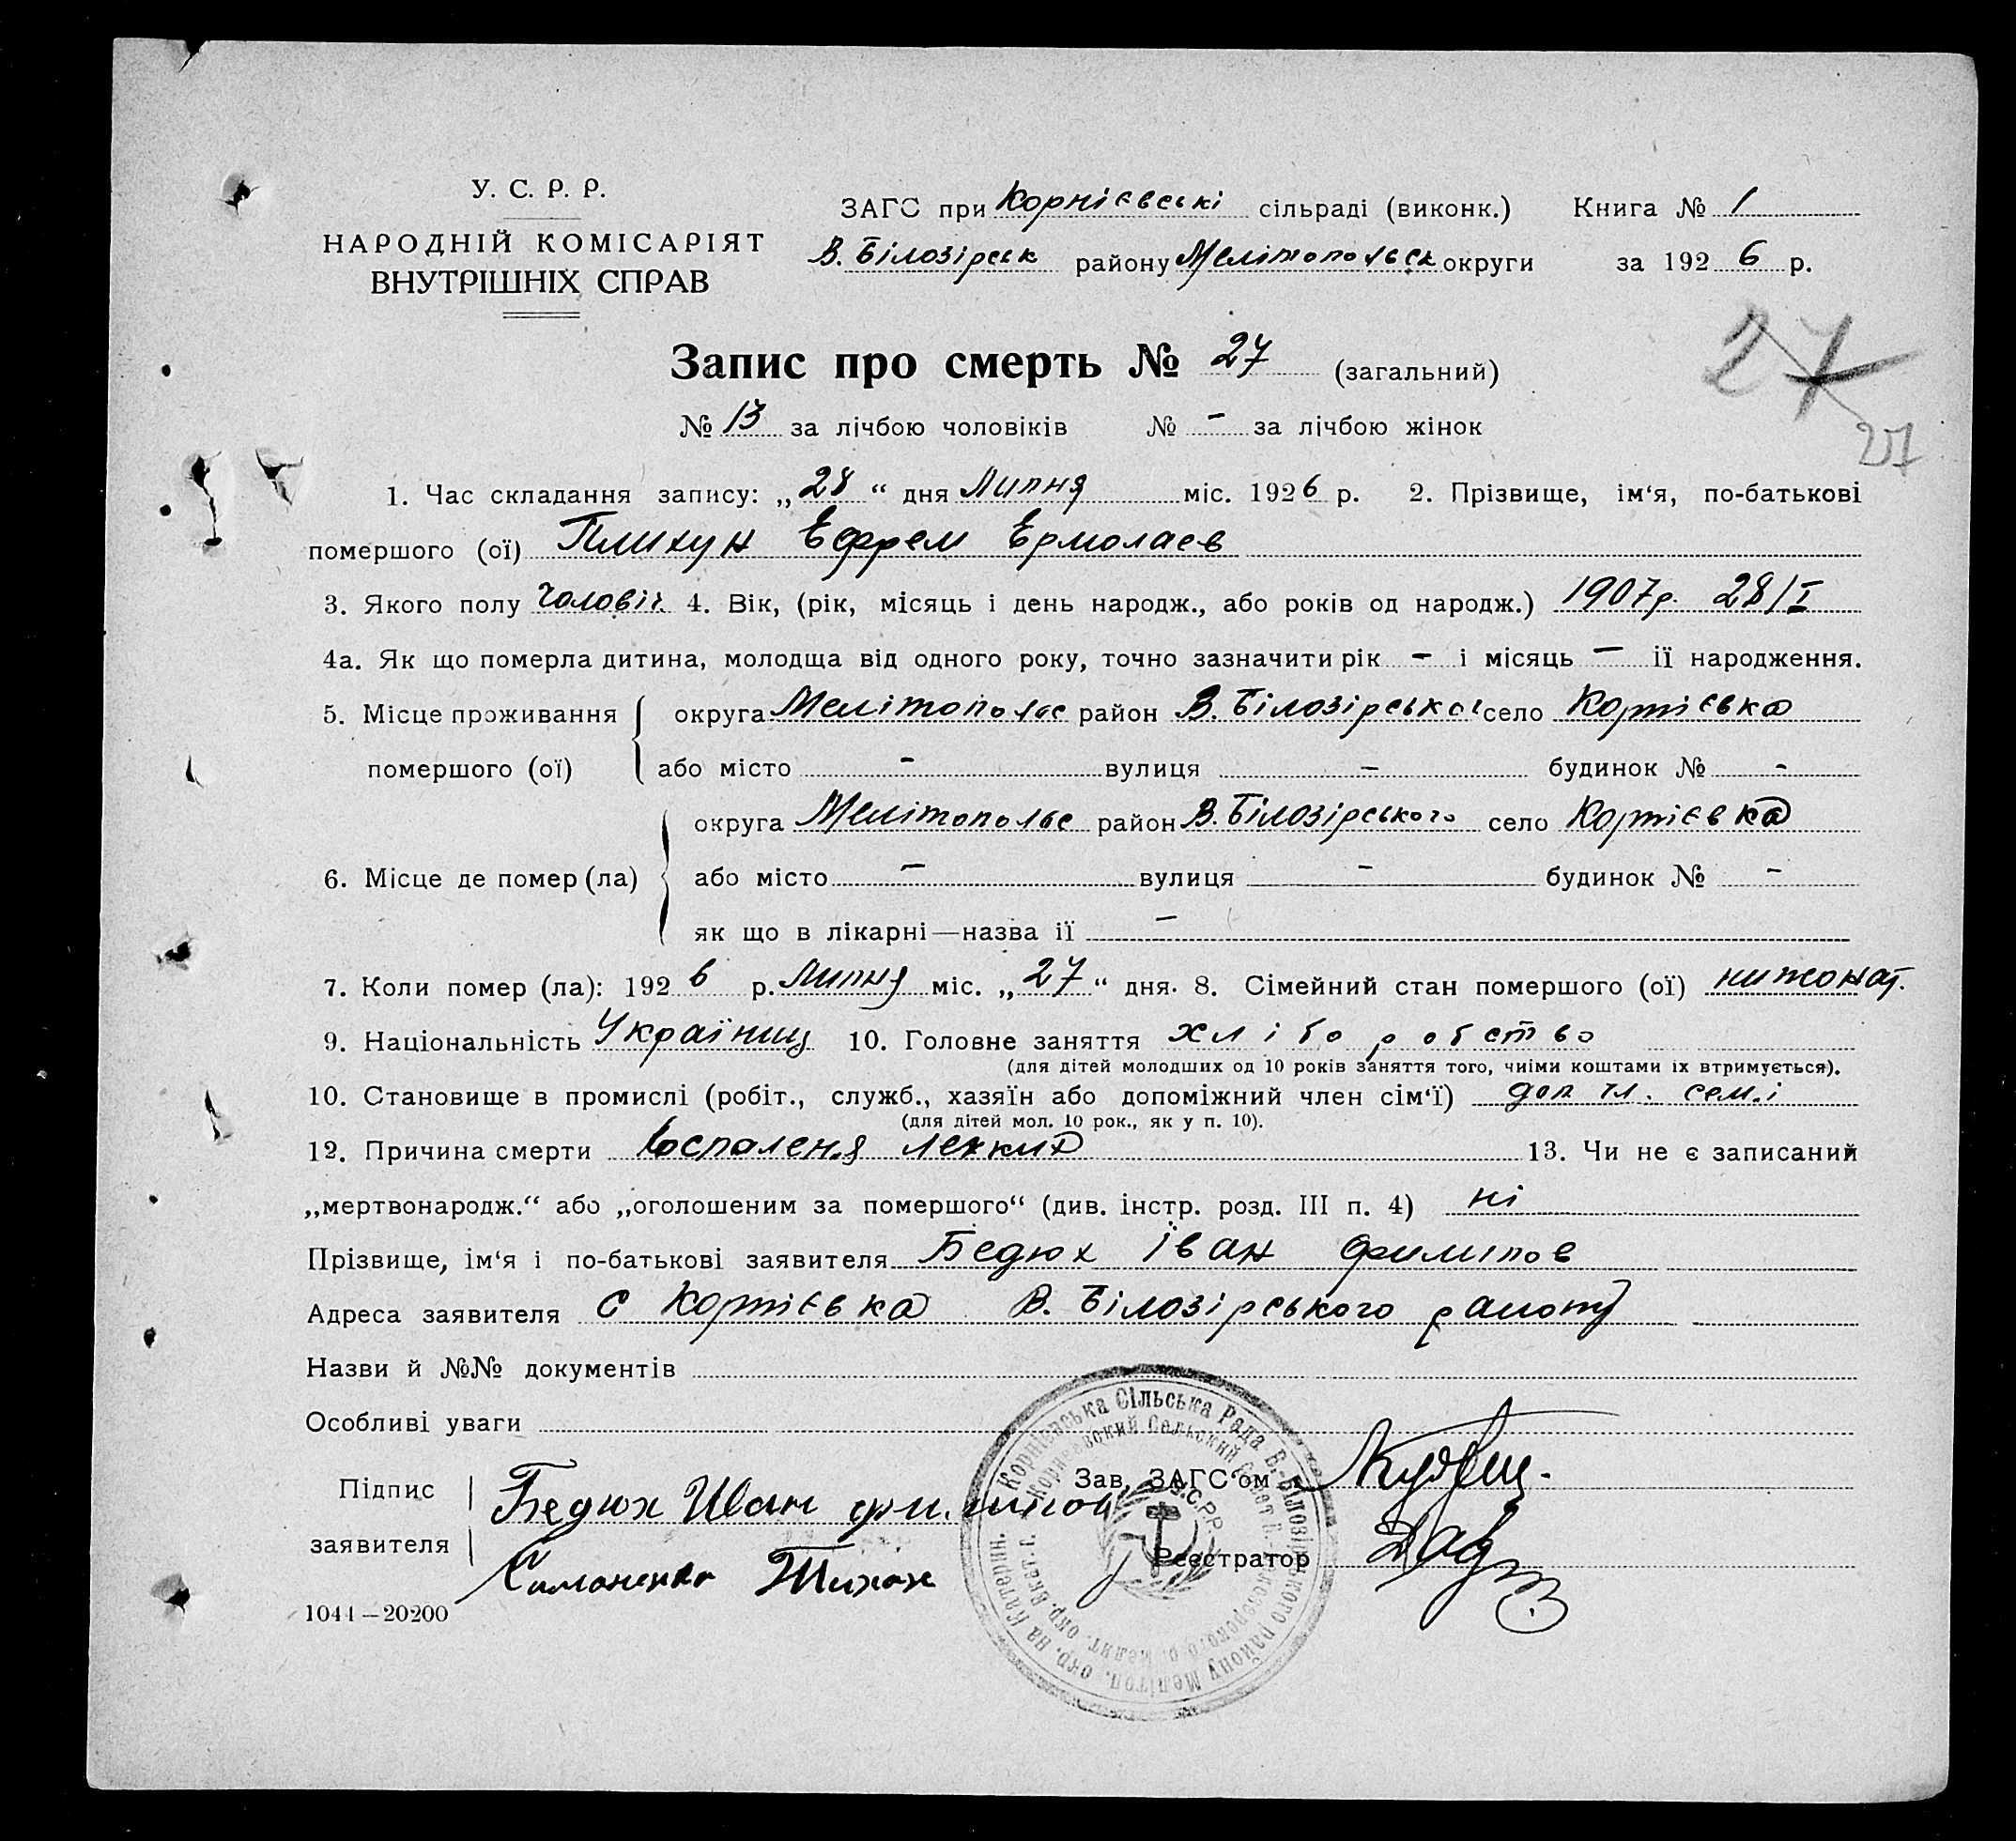 У. С. Р. Р.
НАРОДНІЙ КОМІСАРІЯТ
ВНУТРІШНІХ СПРАВ
ЗАГС при Корнієвські сільраді (виконк.) Книга № 1
В. Білозірськ району Мелітопольск округи за 1926 р.
Запис про смерть № 27 (загальний)
27
№ 13 за лічбою чоловіків № - за лічбою жінок
27
1. Час складання запису: „28“ дня Липня міс. 1926 р. 2. Прізвище, ім‘я, по-батькові
помершого (ої) Плихун Ефрем Ермолаев
3. Якого полу Чоловіч. 4. Вік, (рік, місяць і день народж., або років од народж.) 1907р. 28/I
4а. Як що померла дитина, молодща від одного року, точно зазначити рік - і місяць - її народження.
5. Місце проживання округа Мелітопольс район В. Білозірськог село Корнієвка
помершого (ої) або місто - вулиця - будинок № -
округа Мелітопольс район В. Білозірського село Корнієвка
6. Місце де помер (ла) або місто - вулиця - будинок № -
як що в лікарні—назва її -
7. Коли помер (ла): 1926 р. Липня міс. „27“ дня. 8. Сімейний стан помершого (ої) нижонат.
9. Національність Українец 10. Головне заняття хліборобство
(для дітей молодших од 10 років заняття того, чиїми коштами їх втримується).
10. Становище в промислі (робіт., служб., хазяїн або допоміжний член сім‘ї) доп чл. семі
(для дітей мол. 10 рок., як у п. 10).
12. Причина смерти Воспаленя лехких 13. Чи не є записаний
„мертвонародж.“ або „оголошеним за помершого“ (див. інстр. розд. III п. 4) ні
Прізвище, ім‘я і по-батькові заявителя Бедюх Іван Филипов
Адреса заявителя С Корнієвка В. Білозірського району
Назви й №№ документів
Особливі уваги
Підпис заявителя Бедюх Иван
Симоненко Тихон
Зав. ЗАГС‘ом
Реєстратор
Корнієвська Сільська Рада В.-Білозірського району Мелітоп. окр. на Катерин.
У.С.Р.Р.
1041—20200